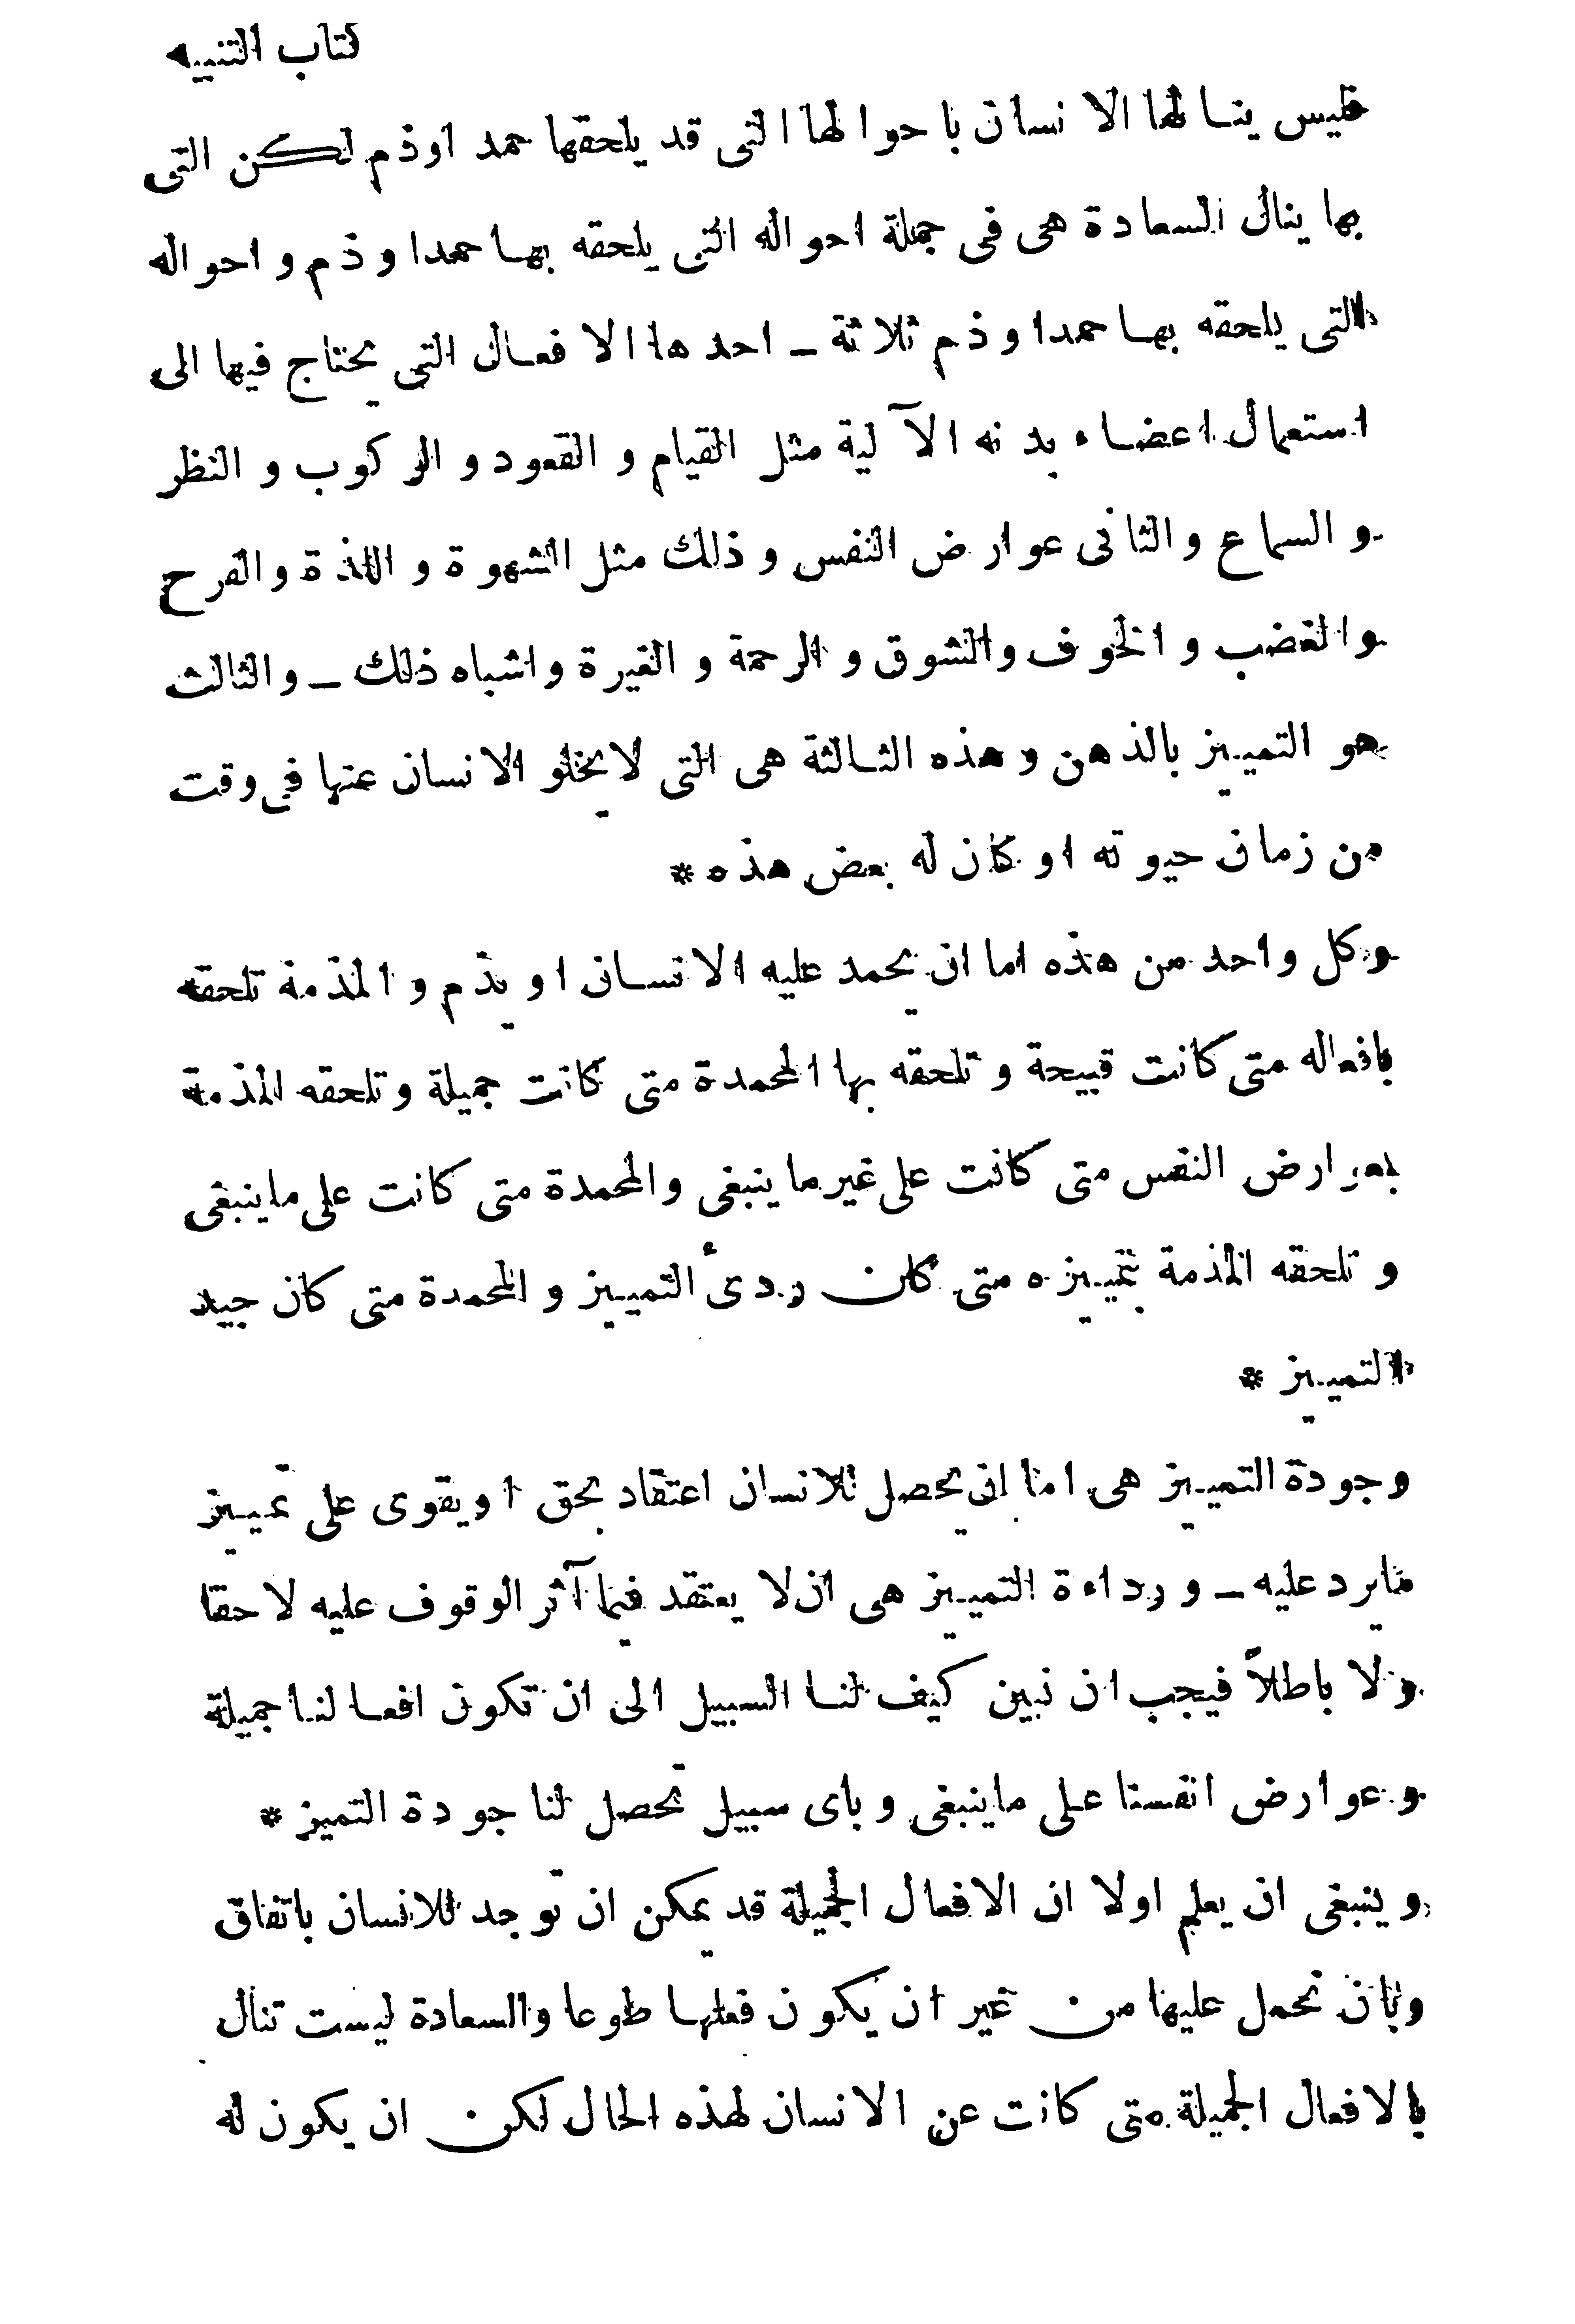 كتاب التنبيه
فليس ينالها الانسان باحوالها التى قد يلحقها حمد اوذم لكن التى
بها ينال السعادة هى فى جملة احواله التى يلحقه بها حمد او ذم و احواله
التى يلحقه بها حمد او ذم ثلاثة ـ احدها الافعال التى يحتاج فيها الى
استعمال اعضاء بدنه الآلية مثل القيام و القعود و الركوب و النظر
و السماع والثانى عوارض النفس و ذلك مثل الشهوة و اللذة والفرح
والغضب و الخوف والشوق و الرحمة و الغيرة واشباه ذلك ـ والثالث
هو التمييز بالذهن وهذه الثالثة هى التى لايخلو الانسان عنها فى وقت
من زمان حيوته او كان له بعض هذه *
وكل واحد من هذه اما ان يحمد عليه الانسان او يذم و المذمة تلحقه
بافعاله متى كانت قبيحة و تلحقه بها المحمدة متى كانت جميلة وتلحقه المذمة
بعوارض النفس متى كانت على غير ما ينبغى والمحمدة متى كانت على ماينبغى
و تلحقه المذمة بتمييزه متى كان ردىٔ التمييز و المحمدة متى كان جيد
التمييز *
وجودة التمييز هى اما ان يحصل للانسان اعتقاد بحق او يقوى على تمييز
مايرد عليه ـ ورداءة التمييز هى ان لا يعتقد فيما آثر الوقوف عليه لاحقا
ولا باطلاً فيجب ان نبين كيف لنا السبيل الى ان تكون افعالنا جميلة
وعوارض انفسنا على ماينبغى و باى سبيل تحصل لنا جودة التميز *
وينبغى ان يعلم اولا ان الافعال الجميلة قد يمكن ان توجد للانسان باتفاق
وبان تحمل عليها من غير ان يكون فعلها طوعا والسعادة ليست تنال
بالافعال الجميلة متى كانت عن الانسان لهذه الحال لكن ان يكون له